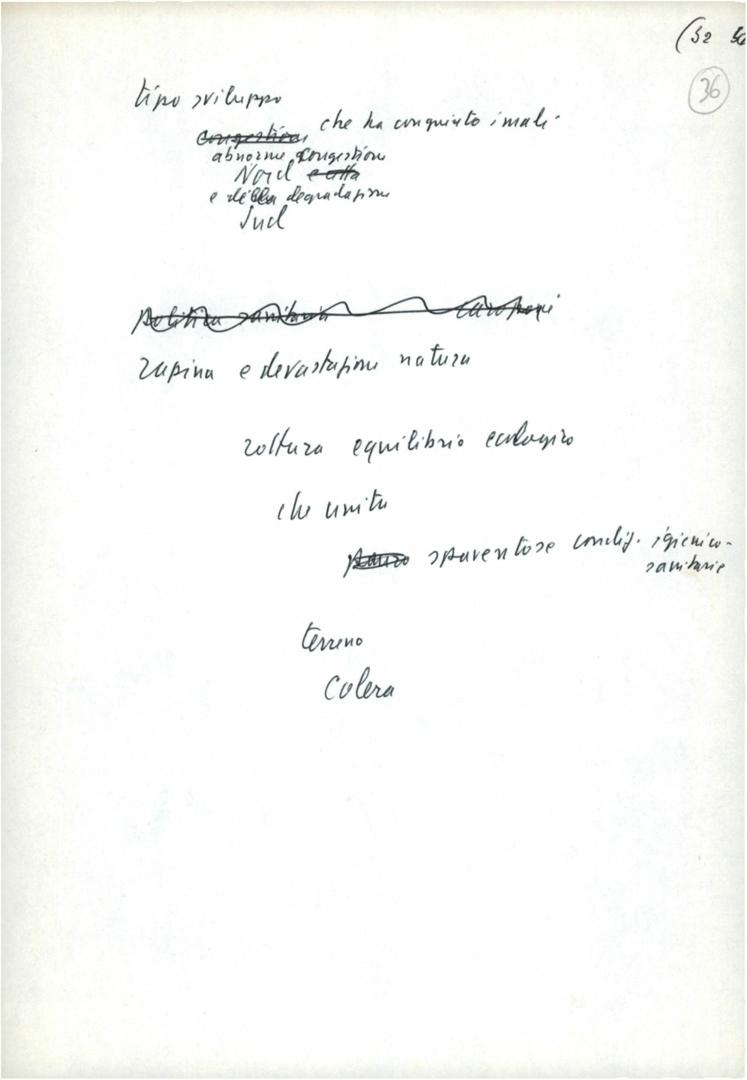 (32 36
36
tipo sviluppo
congestione che ha congiunto i mali
abnorme congestione
Nord e alla
e della degradazione
Sud
Politica sanitaria
rapina e devastazione natura
rottura equilibrio ecologico
che unita
spaventose condiz. igienico-
sanitarie
terreno
Colera